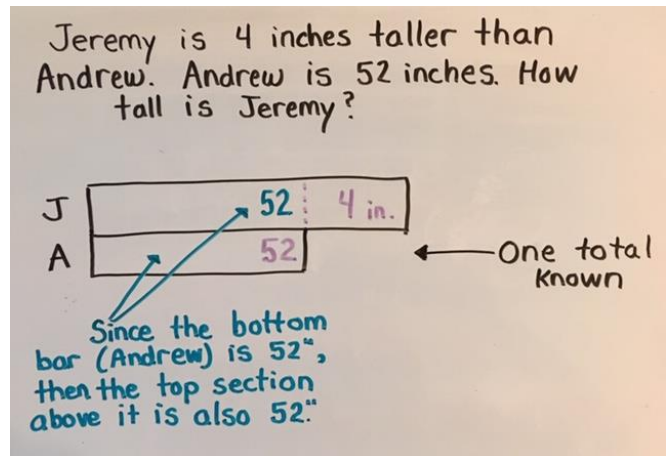 Jeremy is 4 inches taller than
Andrew. Andrew is 52 inches. How
tall is Jeremy?
J 52 4 in.
A 52
One total
known
Since the bottom
bar (Andrew) is 52",
then the top section
above it is also 52."